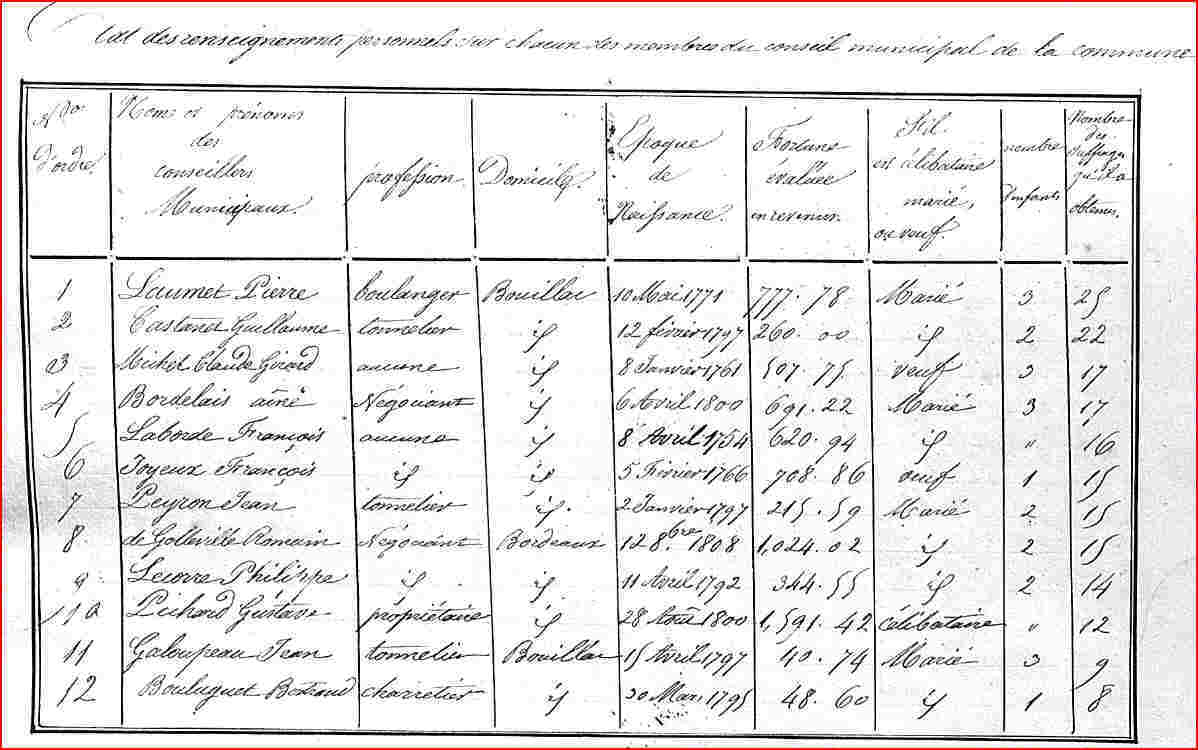 état des renseignements personnels sur chacun des membres du conseil municipal de la commune
Nos d'ordre. Noms et prénoms des conseillers Municipaux. profession. Domicile. Epoque de Naissance. Fortune évaluée en revenus. S'il est célibataire marié, ou veuf. nombre d'enfants Nombre des suffrages qu'il a obtenus.
1 Laumet Pierre boulanger Bouillac 10 Mai 1771 777.78 Marié 3 25
2 Castanet Guillaume tonnelier id 12 février 1797 260.00 id 2 22
3 Michel Claude Girard aucune id 8 Janvier 1761 507.75 veuf 3 17
4 Bordelais ainé Négociant id 6 Avril 1800 691.22 Marié 3 17
5 Laborde François aucune id 8 Avril 1754 620.94 id " 16
6 Joyeux François id id 5 Février 1766 708.86 veuf 1 15
7 Peyron Jean tonnelier id. 2 Janvier 1797 215.59 Marié 2 15
8 de Golleville Romain Négociant Bordeaux 12 8bre 1808 1,024.02 id 2 15
9 Lecorre Philippe id id 11 Avril 1792 344.55 id 2 14
10 Pichard Gustave propriétaire id 28 Août 1800 1,591.42 célibataire " 12
11 Galoupeau Jean tonnelier Bouillac 15 Avril 1797 40.74 Marié 3 9
12 Bouluguet Bertrand charretier id 30 Mars 1795 48.60 id 1 8